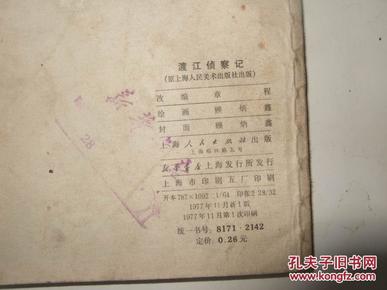 渡江侦察记
(原上海人民美术出版社出版)
改编 章程
绘画 顾炳鑫
封面 顾炳鑫
上海人民出版社出版
上海绍兴路五号
新华书店上海发行所发行
上海市印刷五厂印刷
开本787×1092 1/64 印张2 28/32
1977年11月新1版
1977年11月第1次印刷
统一书号: 8171·2142
定价: 0.26元
28
孔夫子旧书网